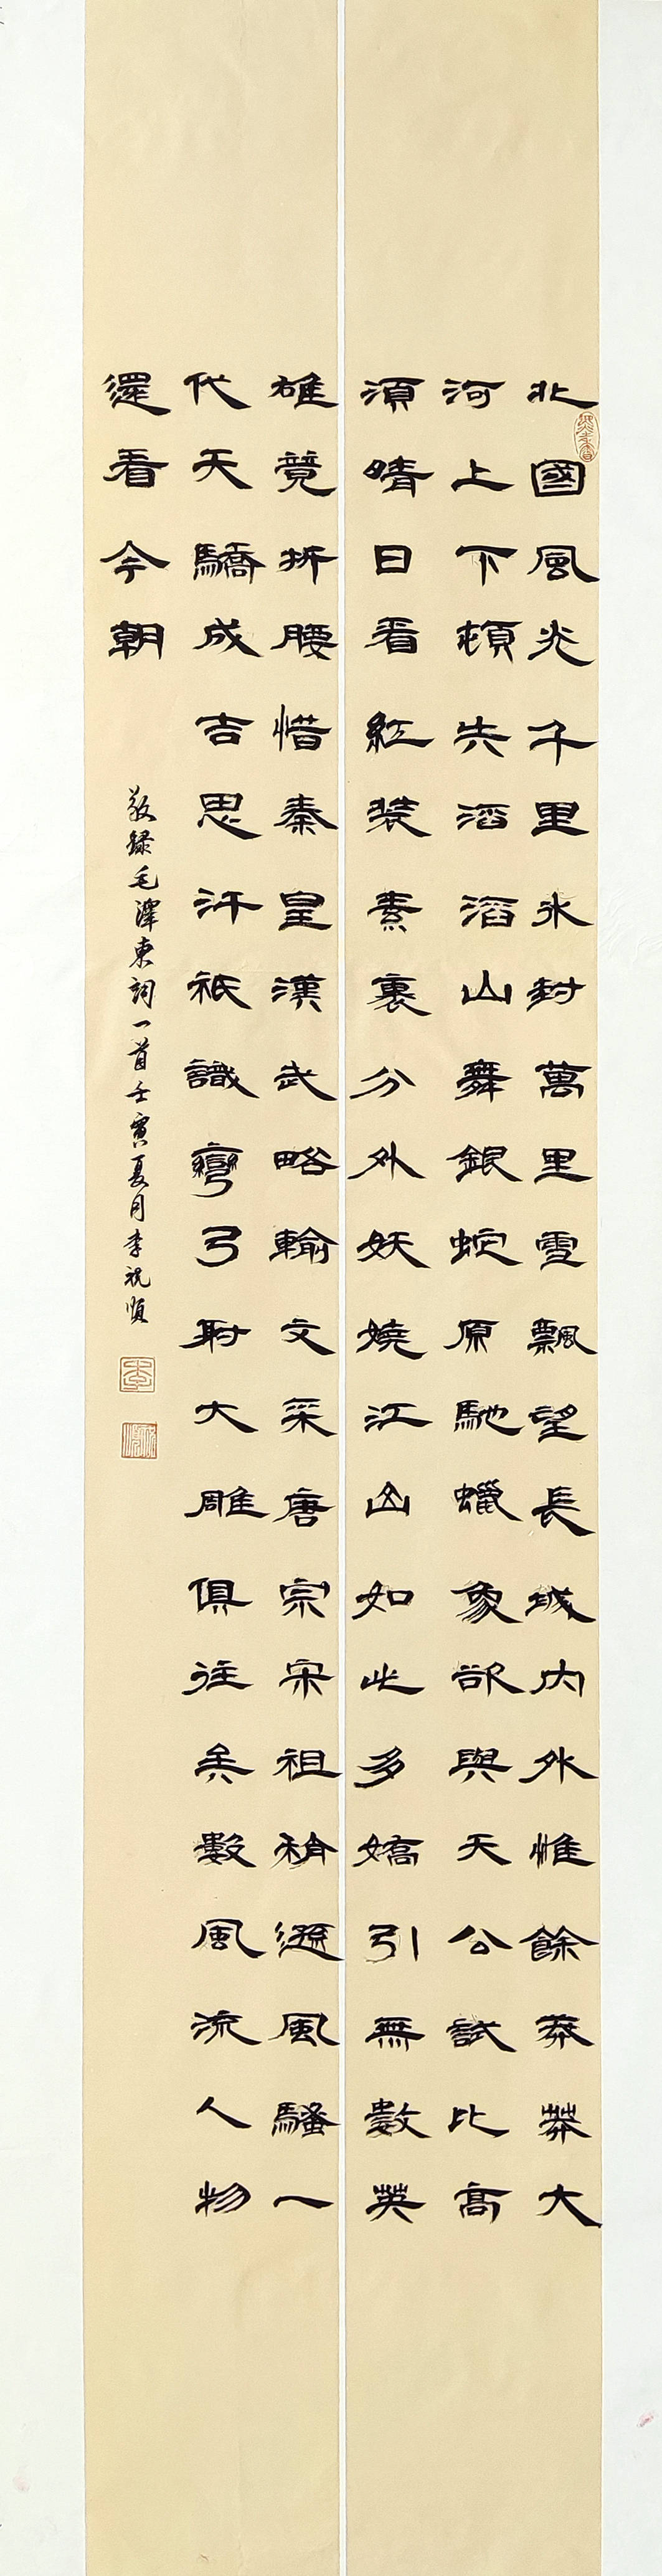 北國風光千里冰封萬里雪飄望長城內外惟餘莽莽大
河上下頓失滔滔山舞銀蛇原馳蠟象欲與天公試比高
須晴日看紅裝素裹分外妖嬈江山如此多嬌引無數英
雄競折腰惜秦皇漢武略輸文采唐宗宋祖稍遜風騷一
代天驕成吉思汗衹識彎弓射大雕俱往矣數風流人物
還看今朝
敬錄毛澤東詞一首壬寅夏月李祝順